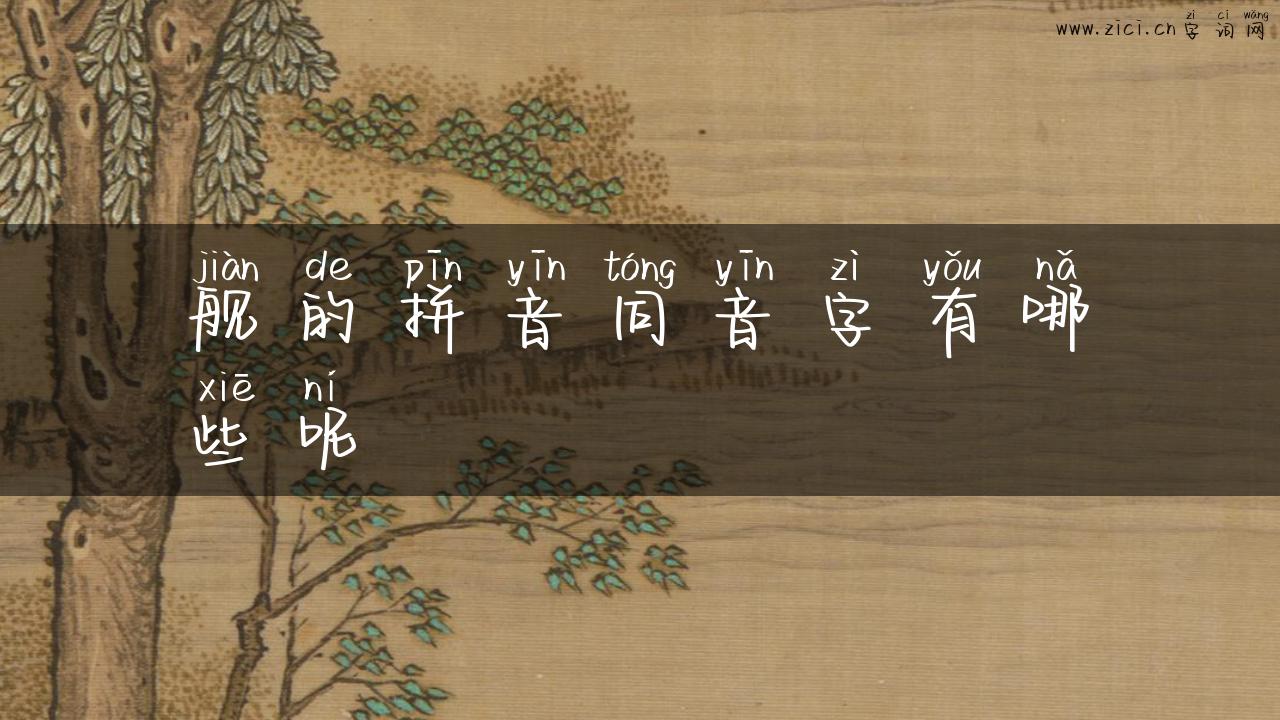 zì cí wǎng
www.zici.cn 字词网
jiàn de pīn yīn tóng yīn zì yǒu nǎ
舰的拼音同音字有哪
xiē ní
些呢